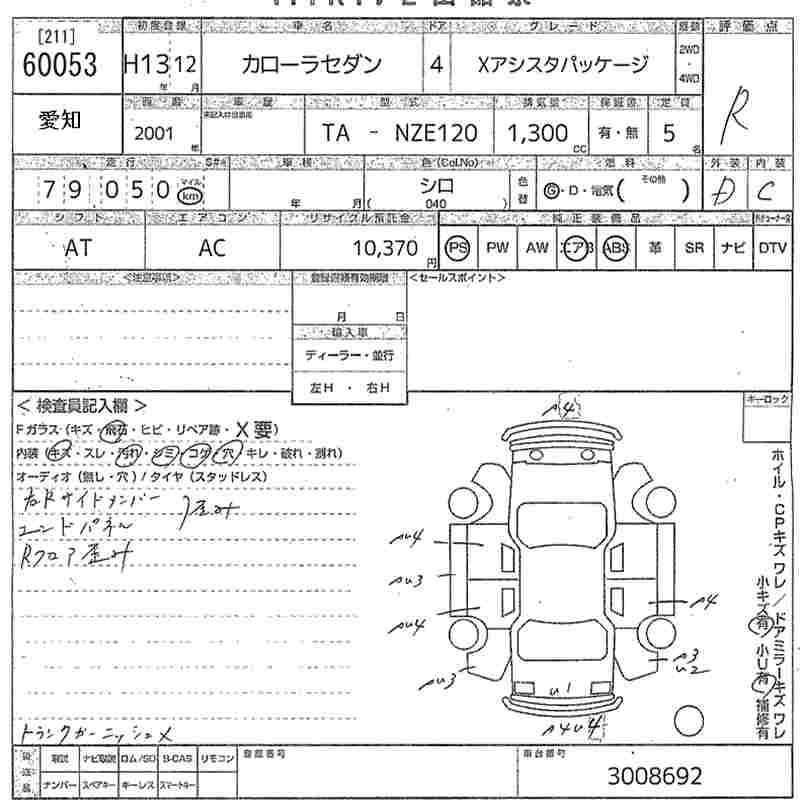 [211]
60053
初度登録
H13 12
年 月
車名
カローラセダン
ドア
4
グレード
Xアシスタパッケージ
2WD
・
4WD
評価点
R
愛知
2001
年
車歴
型式
TA - NZE120
排気量
1,300
CC
有・無
定員
5
名
外装
D
内装
C
走行
79050
マイル
km
車検
年 月
色(Col.No)
シロ
( 040 )
色替
燃料
G・D・電気( その他 )
シフト
AT
エアコン
AC
リサイクル預託金
10,370
円
純正装備品
PS PW AW エアB ABS 革 SR ナビ DTV
<注意事項>
登録書類有効期限
月 日
輸入車
ディーラー・並行
左H ・ 右H
<セールスポイント>
<検査員記入欄>
Fガラス(キズ・飛石・ヒビ・リペア跡・X要)
内装(キズ・スレ・汚れ・シミ・コゲ・穴・キレ・破れ・割れ)
オーディオ(無し・穴)/タイヤ(スタッドレス)
右Rサイドメンバー
エンドパネル
歪み
Rフロア歪み
トランクガーニッシュX
キーロック
ホイル・CPキズ ワレ/ドアミラーキズ ワレ
小キズ有 小U有 補修有
A4
AU4
AU3
AU4
AU3
A4
A3
U2
U1
A4U4
後送品
取説 ナビ取説 ロム/SD B-CAS リモコン
ナンバー スペアキー キーレス スマートキー
登録番号
車台番号
3008692